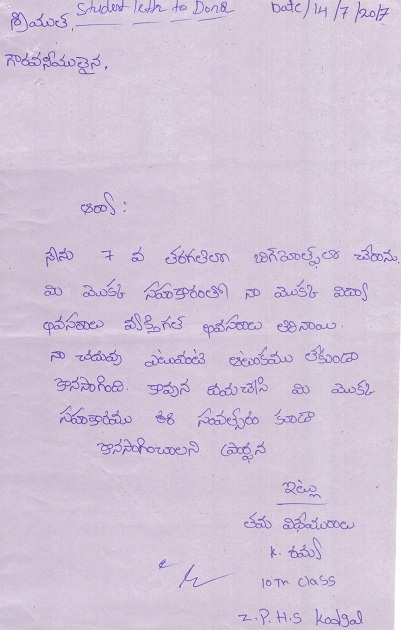 Student letter to Donor Date/14/7/2017
శ్రీయుత,
గౌరవనీయులైన,
ఆర్యా :
నేను 7 వ తరగతిలో బిగ్‌హెల్ప్‌లో చేరాను.
మి మొక్క సహకారంతో నా మొక్క విద్యా
అవసరాలు వ్యక్తిగత అవసరాలు తీరినాయి.
నా చదువు ఎటువంటి ఆటంకము లేకుండా
కొనసాగింది. కావున దయచేసి మి మొక్క
సహకారము ఈ సంవత్సరం కూడా
కొనసాగించాలని ప్రార్థన
ఇట్లు
తమ విధేయురాలు
K. రమ్య
10TH class
Z.P.H.S Kodgal